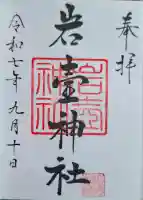 奉拝
岩壷神社
令和七年九月十日